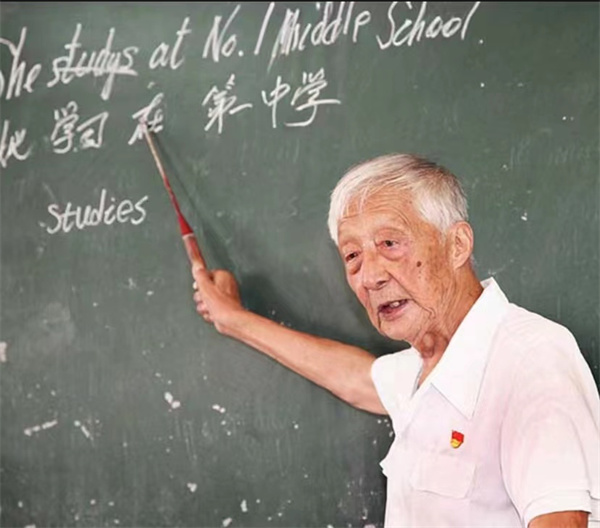 She studys at No.1 Middle School.
她 学习 在 第一中学
studies